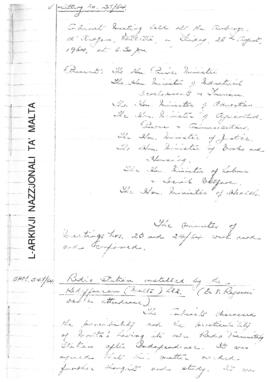 Meeting No. 25/64
Cabinet Meeting held at the Auberge
d'Aragon, Valletta, on
1964, at 6.30 pm
Present: The Hon. Prime Minister
The Hon. Minister of Industrial
Development & Tourism
The Hon. Minister of Education
The Hon. Minister of Agriculture,
Power & Communications
The Hon. Minister of Justice
The Hon. Minister of Works and
Housing
The Hon. Minister of Labour
& Social Welfare
The Hon. Minister of Health
The minutes of
Meetings Nos. 23 and 24/64 were read
and confirmed.
L-ARKIVJI NAZZJONALI TA' MALTA
Radio Station installed by the
Rediffusion (Malta) Ltd.
The Cabinet discussed
the possibility and the
of Malta having its own Radio
Station after Independence. It was
agreed that this matter needed
further thought and study. It was